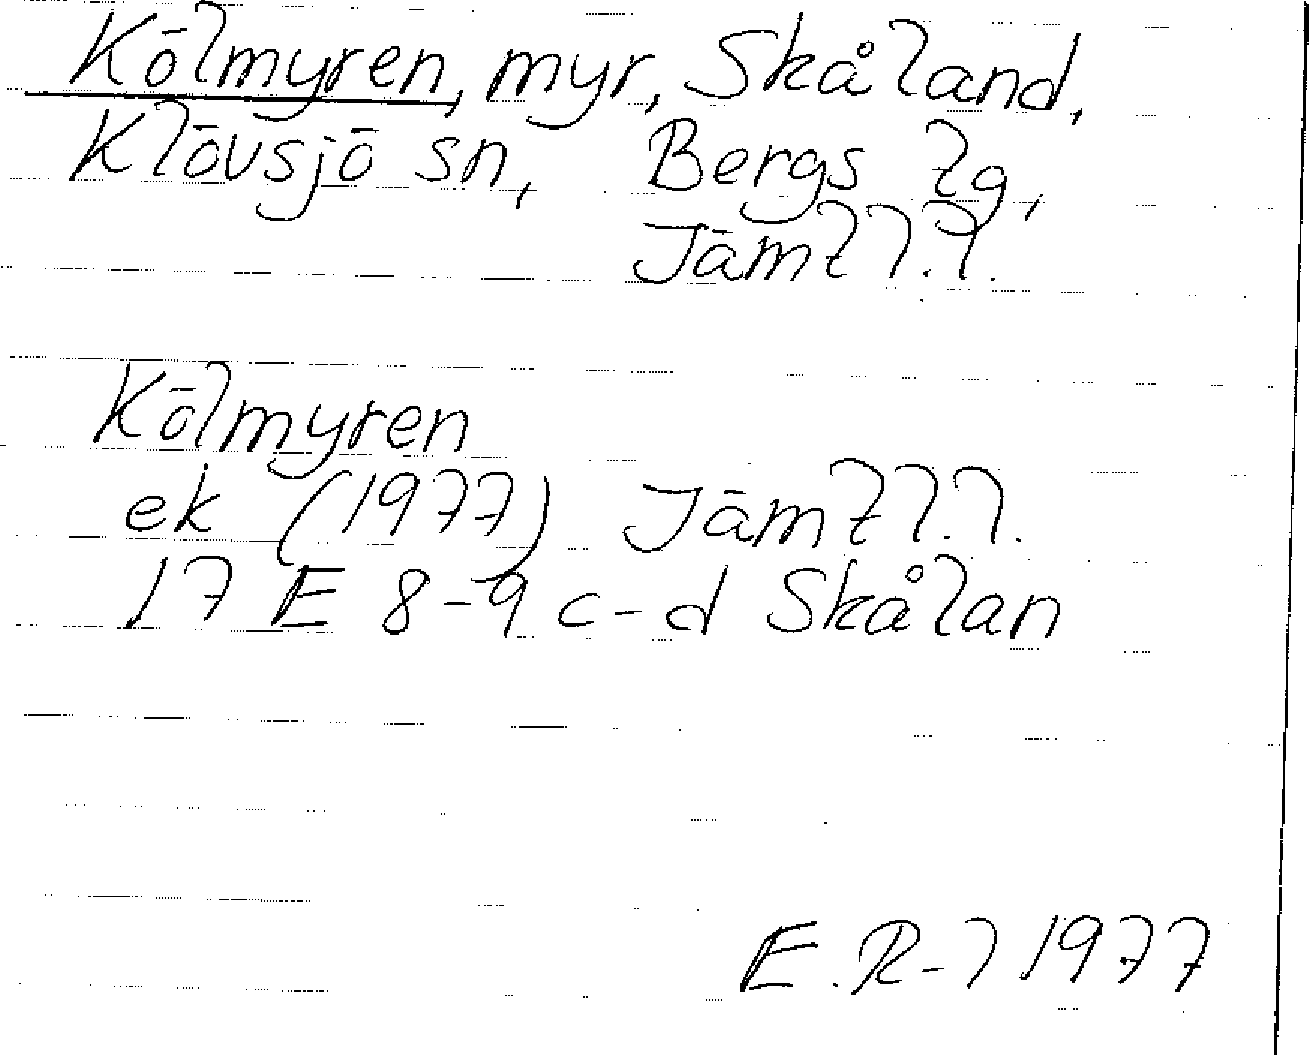 Kölmyren, myr, Skåland,
Klövsjö sn, Bergs tg,
Jämtl.l.
Kölmyren
ek (1977) Jämtl.l.
17 E 8-9 c-d Skålan
E.R-l 1977